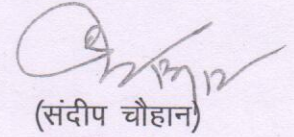 (संदीप चौहान)